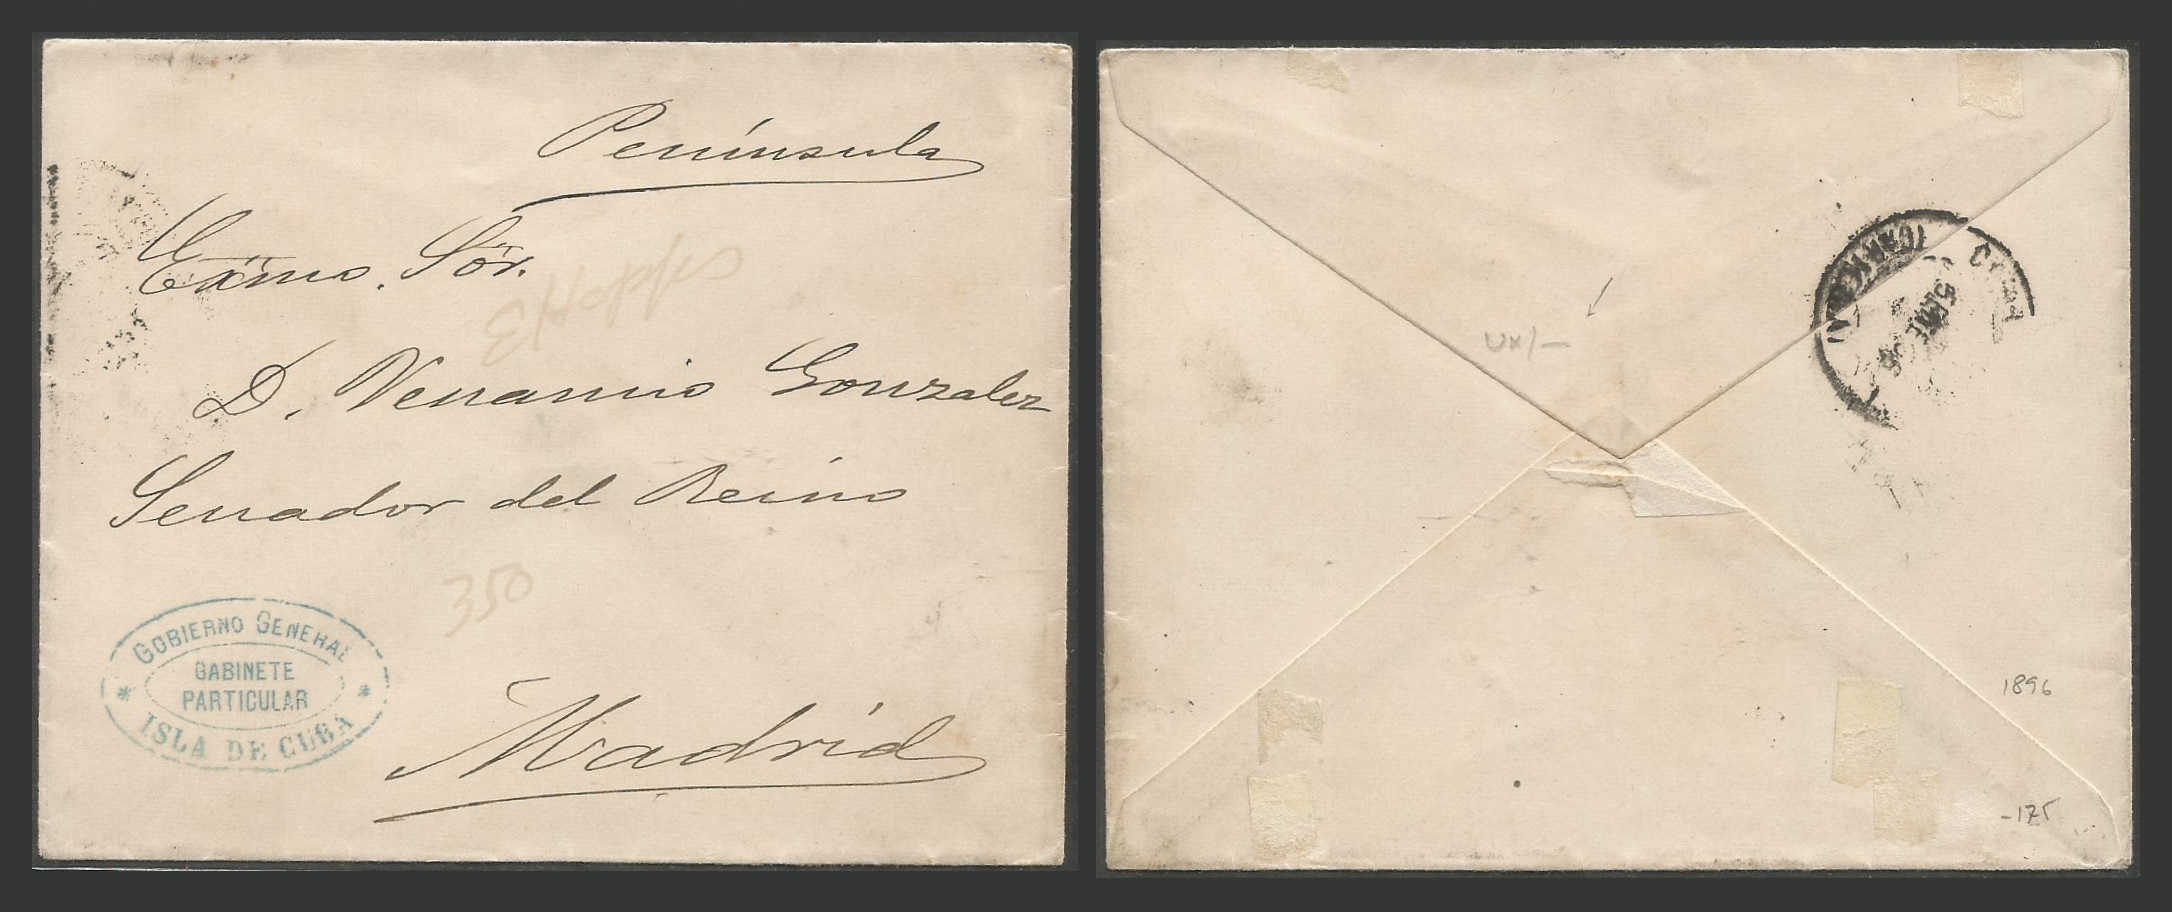 Península
Exmo. Sör.
D. Venancio Gonzalez
Senador del Reino
Madrid
350
GOBIERNO GENERAL
GABINETE
PARTICULAR
ISLA DE CUBA
ux/-
1896
-175